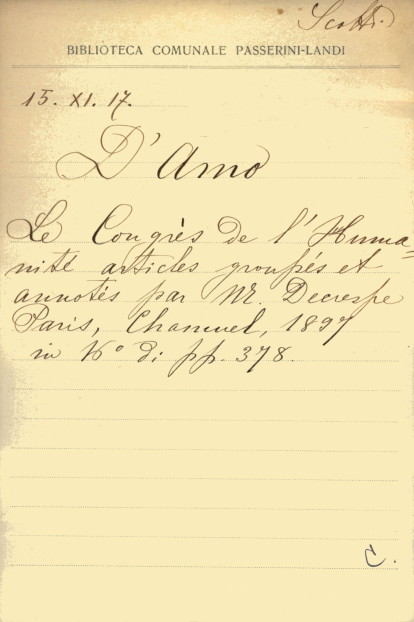 Scotti
BIBLIOTECA COMUNALE PASSERINI-LANDI
15. XI. 17.
D'Amo
Le Congrès de l'Huma-
nité articles groupés et
annotés par M. Decrespe
Paris, Chamuel, 1897
in 16° di pp. 378.
C.